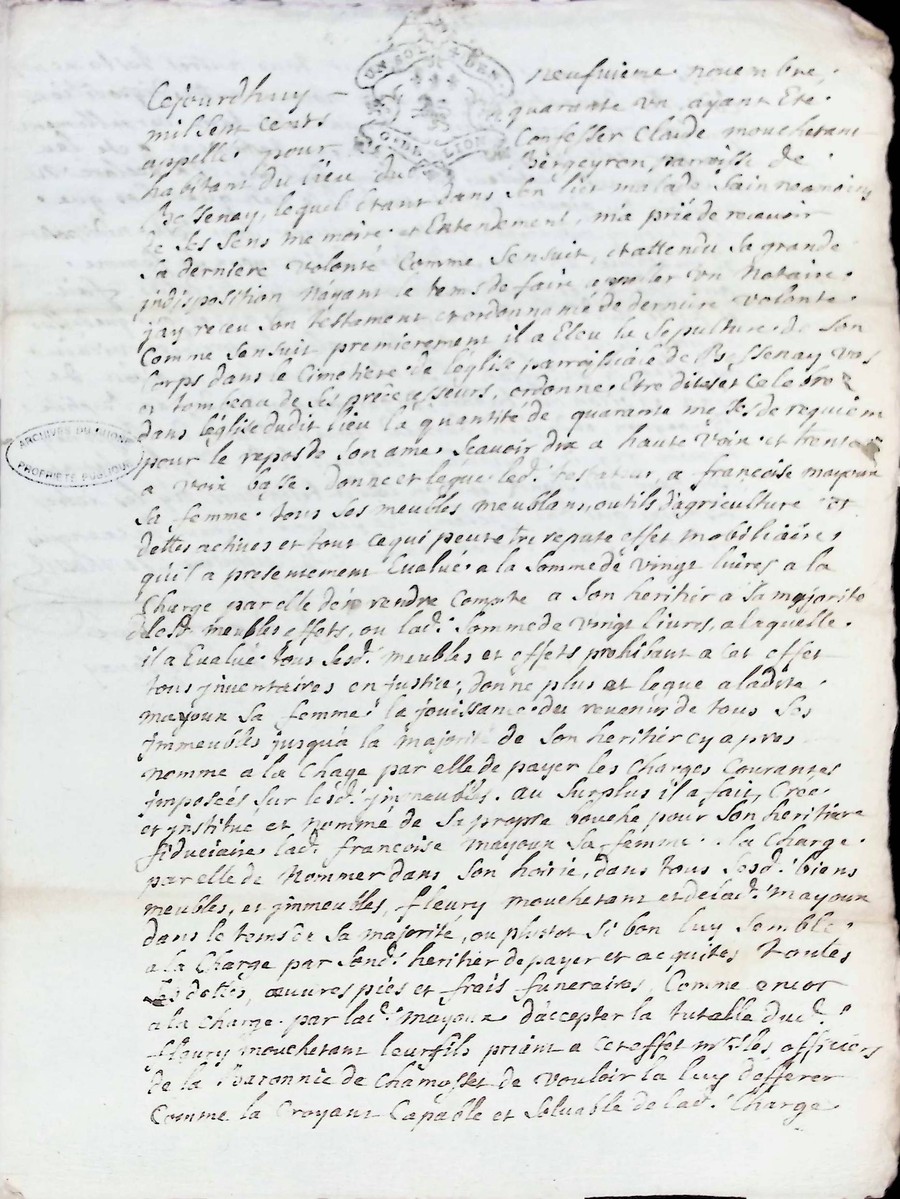 UN SOL 4 DEN
GNLE LION
Cejourdhuy neufvieme novembre,
mil sent cents quarante un ayant Eté
appellé pour Confesser Claude moucherant
habitant du lieu du Bergeyron parroisse de
Bessenay, lequel Etant dans son lict malade, sain neamoins
de ses sens memoire et Entendement, m'a prié de recevoir
sa derniere volonté comme sensuit, et attendu sa grande
jndisposition N'ayant le tems de faire appeler un Notaire
j'ay receu son Testament et ordonnance de derniere volonte
comme sensuit premierement il a Eleu la sepulture de son
corps dans le Cimetière de l'église parroissiale de Bessenay vas
et tombeau de ses prédécesseurs, ordonne Etre dites et celebré
dans l'église dudit lieu la quantité de quarante messes de requiem
pour le repos de son ame, scavoir dix a haute voix et trente
a voix basse. Donne et legue led. testateur, a francoise mayoux
sa femme tous ses meubles meublans, outils d'agriculture et
dettes actives et tout ce qui peut etre reputé effet mobiliaire
qu'il a presentement Evalué a la somme de vingt livres a la
charge par elle d'en rendre compte a son heritier a sa majorité
desd. meubles effets, ou lad. somme de vingt livres, a laquelle
il a Evalué tous lesd. meubles et effets prohibant a cet effet
tous jnventaires en justice, donne plus et legue a ladite
mayoux sa femme, la jouissance du revenus de tous ses
jmmeubles jusqu'a la majorité de son heritier cy apres
nommé a la Chage par elle de payer les charges courantes
jmposées sur lesd. jmmeubles. au surplus il a fait, créé
et jnstitué et nommé de sa propre bouche pour son heritiere
fiduciaire lad. francoise mayoux sa femme, a la charge
par elle de Nommer dans son hoirie, dans tous sesd. biens
meubles, et jmmeubles, fleury moucherant et de lad. mayoux
dans le tems de sa majorité, ou plustot si bon luy semble,
a la charge par sond. heritier de payer et acquites toutes
ses dettes, œuvres pies et frais funeraires, Comme encor
a la charge par lad. mayoux d'accepter la tutelle dud.
fleury moucherant leur fils priant a cet effet mrs les officiers
de la Baronnie de Chamosset de vouloir la luy defferer
comme la croyant Capable et solvable de lad. charge
ARCHIVES DU RHONE
PROPRIETE PUBLIQUE